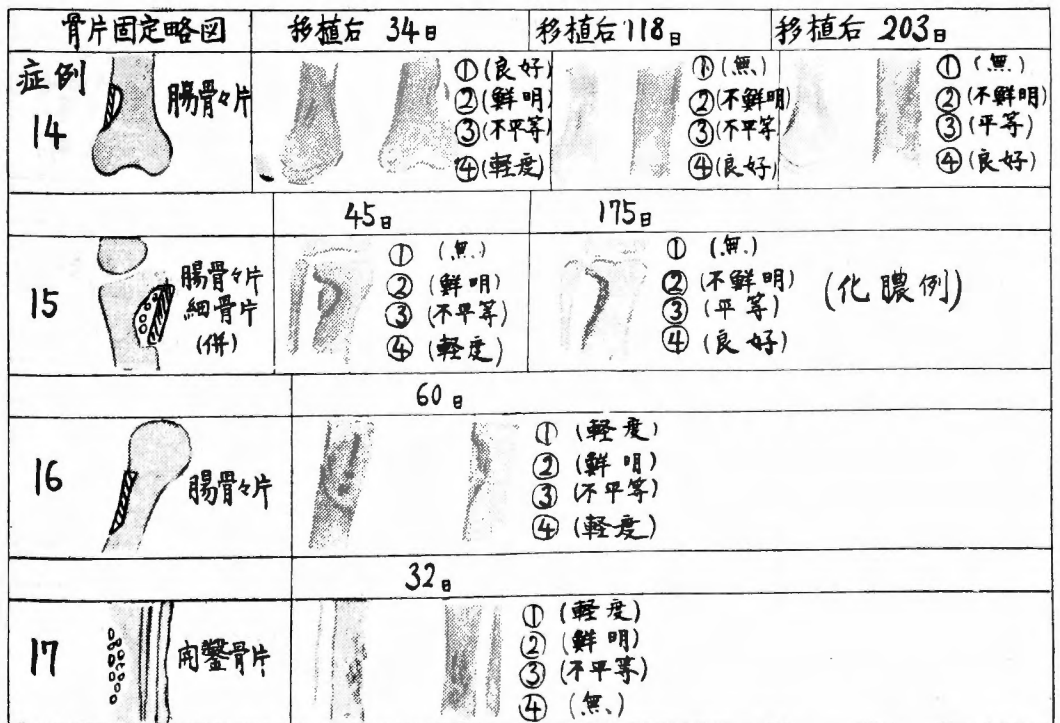 骨片固定略図 移植后 34日 移植后 118日 移植后 203日
症例
14
腸骨々片
①(良好)
②(鮮明)
③(不平等)
④(軽度)
①(無)
②(不鮮明)
③(不平等)
④(良好)
①(無)
②(不鮮明)
③(平等)
④(良好)
45日 175日
15
腸骨々片
細骨片
(併)
①(無)
②(鮮明)
③(不平等)
④(軽度)
①(無)
②(不鮮明)
③(平等)
④(良好)
(化膿例)
60日
16
腸骨々片
①(軽度)
②(鮮明)
③(不平等)
④(軽度)
32日
17
骨片
①(軽度)
②(鮮明)
③(不平等)
④(無)